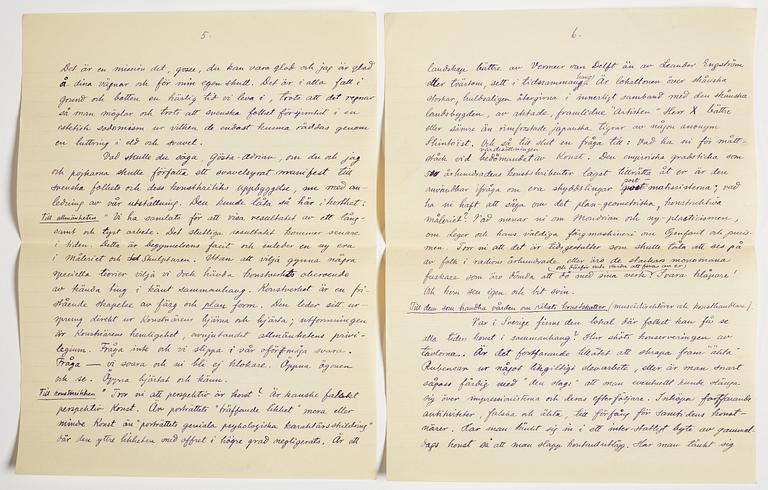 5.
Det är en mission det, gosse, du kan vara glad och jag är glad
å dina vägnar och för min egen skull. Det är i alla fall i
grund och botten en härlig tid vi leva i, trots att det regnar
så man möglar och trots att svenska folket försjunkit i en
estetisk sodomism ur vilken de endast kunna räddas genom
en luttring i eld och svavel.
Vad skulle du säga Gösta-Adrian, om du och jag
och pojkarna skulle författa ett svavelsyrat manifest till
svenska folkets och dess konstkritiks uppbyggelse, nu med an-
ledning av vår utställning. Den kunde låta så här i korthet.
Till allmänheten "Vi ha samlats för att visa resultatet av ett lång-
samt och tyst arbete. Det slutliga resultatet kommer senare
i tiden. Detta är begynnelsens facit och inleder en ny era
i Måleriet och Skulpturen. Utan att vilja gynna några
speciella teorier vilja vi dock hävda konstverkets oberoende
av kända ting i känt sammanhang. Konstverket är en fri-
stående skapelse av färg och plan form. Den leder sitt ur-
sprung direkt ur Konstnärens hjärna och hjärta; utformningen
är Konstnärens hemlighet, avnjutandet allmänhetens privi-
legium. Fråga inte och vi slippa i vår oförmåga svara.
Fråga — vi svara och ni bli ej klokare. Öppna ögonen
och se. Öppna hjärtat och känn.
Till konstkritiken "Tror ni att perspektiv är konst? Är kanske falskt
perspektiv Konst. Är porträttets "träffande likhet" mera eller
mindre Konst än "porträttets geniala psykologiska karaktärsskildring"
där den yttre likheten med offret i högre grad negligerats. Är ett
6.
landskap bättre av Vermeer van Delft än av Leander Engström
eller tvärtom, sett i tidssammanhang? Är lokaltonen över skånska
storkar, hultbaligen återgivna i innerligt samband med den skånska
landsbygden, av aktade, framlidne "Artisten" Herr X bättre
eller sämre än rimfrostade japanska tigrar av någon anonym
Och så till slut en fråga till: Vad ha ni för mått-
stock vid värdesättningen av Konst. Den empiriska grabsticka som
århundradens konstskribenter laget tillrätta åt er är den
användbar ifråga om era skyddslingar post-matisseisterna; vad
ha ni haft att säga om det plan-geometriska, konstruktiva
måleriet? Vad menar ni om Mondrian och ny-plasticismen,
om Leger och hans väldiga färgmaskineri om Ozenfant och puris-
men. Tror ni att det är tidsgestalter som skulle tåla att ses på
av folk i nästa århundrade eller äro de stackars monomana
fuskare som äro dömda att dö med sina verk? (och därför inte värda att skriva om er) Svara kläpare!
Och kom sen igen och bit svin.
Till dem som handha vården om rikets konstskatter (museidirektörer och konsthandlare).
Var i Sverige finns den lokal där folket kan få se
alla tiders konst i sammanhang? Hur sköts konserveringen av
tavlorna. Är det fortfarande tillåtet att skrapa fram "äkta"
Rubensar ur något likgiltigt elevarbete, eller är man snart
såpass färdig med "den slags" att man eventuellt kunde
sig över impressionisterna och deras efterföljare. Inköpa fortfarande
antikviteter, falska och äkta, till förfång för samtidens konst-
närer. Har man tänkt sig in i ett inter-statligt byte av gammal-
dags konst så att man slapp kontantutlägg. Har man tänkt sig